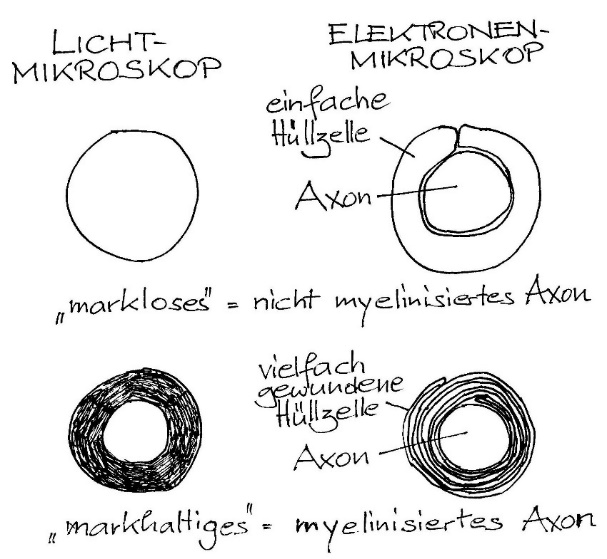 LICHT-
MIKROSKOP
ELEKTRONEN-
MIKROSKOP
einfache
Hüllzelle
Axon
„markloses" = nicht myelinisiertes Axon
vielfach
gewundene
Hüllzelle
Axon
„markhaltiges" = myelinisiertes Axon